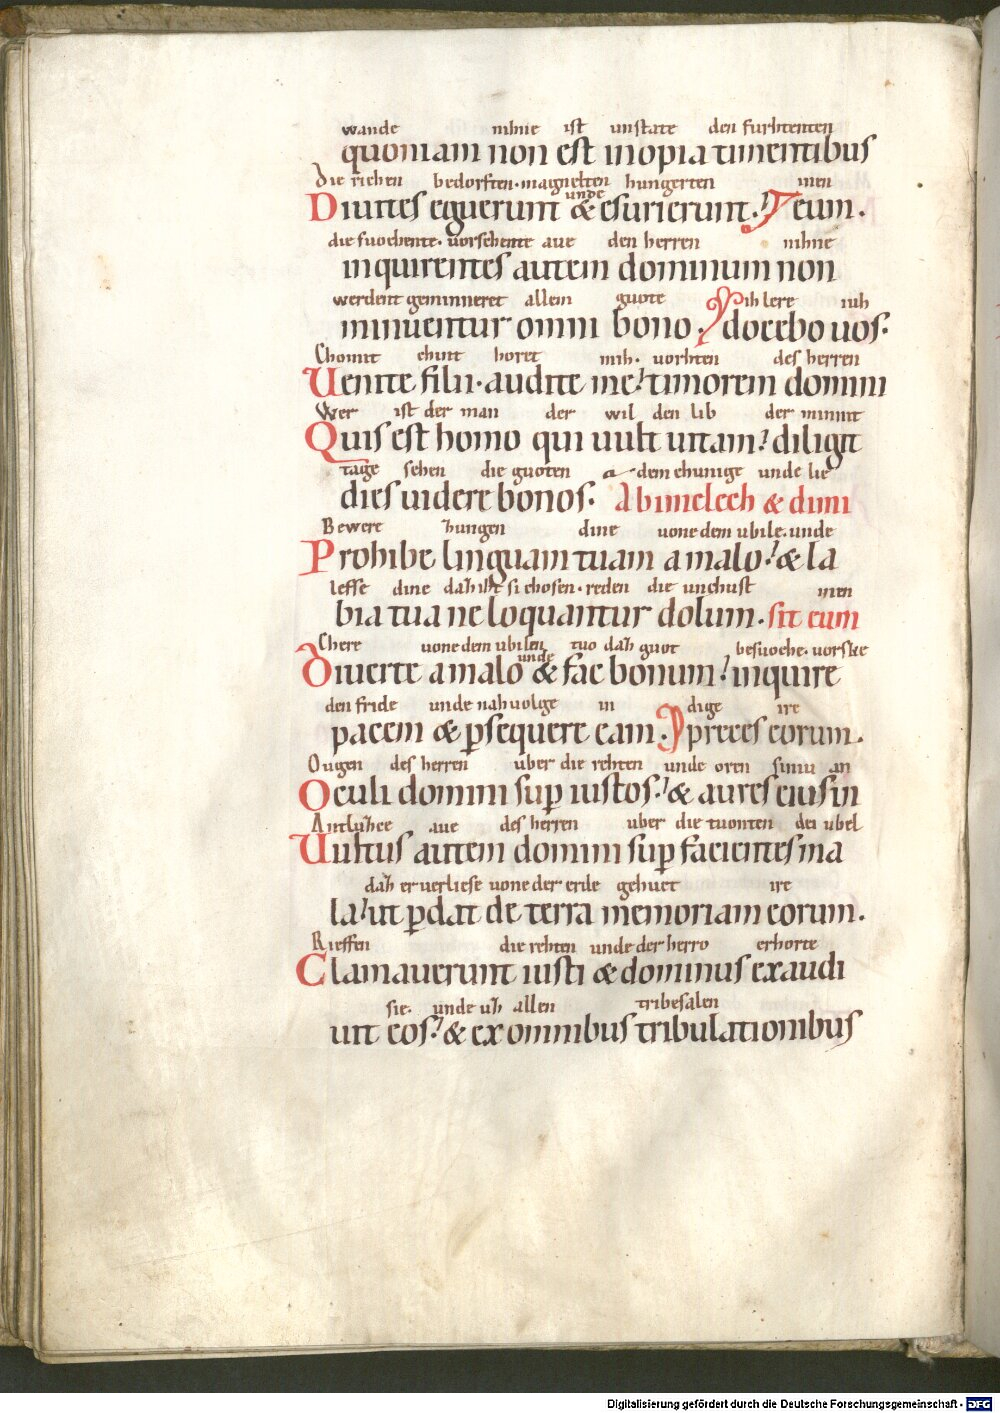 wande nihnie ist unstate den furhtenten
quoniam non est inopia timentibus
Die richen bedorften·magnelten hungerten inen
unde
Diuites eguerunt & esurierunt. eum.
die suochente. vorschente aue den herren nihne
inquirentes autem dominum non
werdent geminneret allem guote ih lere iuh
minuentur omni bono. docebo uos.
Chomit chint horet mih. vorhten des herren
Uenite filii·audite me timorem domini
Wer ist der man der wil den lib der minnit
Quis est homo qui uult uitam? diligit
tage sehen die guoten dem chunige unde lie
dies uidere bonos. Abimelech & dimi
Bewere zungen dine vone dem ubile. unde
Prohibe linguam tuam a malo & la
lesse dine daz iht si chosen·reden die unchust inen
bia tua ne loquantur dolum. sit eum
Chere uone dem ubilen tuo daz guot besuoche. vorske
unde
Diuerte a malo & fac bonum inquire
den fride unde nahuolge in dige ire
pacem & psequere eam. preces eorum.
Ougen des herren uber die rehten unde oren siniu an
Oculi domini sup iustos & aures eius in
Antluzce aue des herren uber die tuonten dei ubel
Uultus autem domini sup facientes ma
daz er verliese uone der erde gehuct ire
la ut pdat de terra memoriam eorum.
Rieffen die rehten unde der herro erhorte
Clamauerunt iusti & dominus exaudi
sie. unde uz allen tribesalen
uit eos & ex omnibus tribulationibus
Digitalisierung gefördert durch die Deutsche Forschungsgemeinschaft - DFG